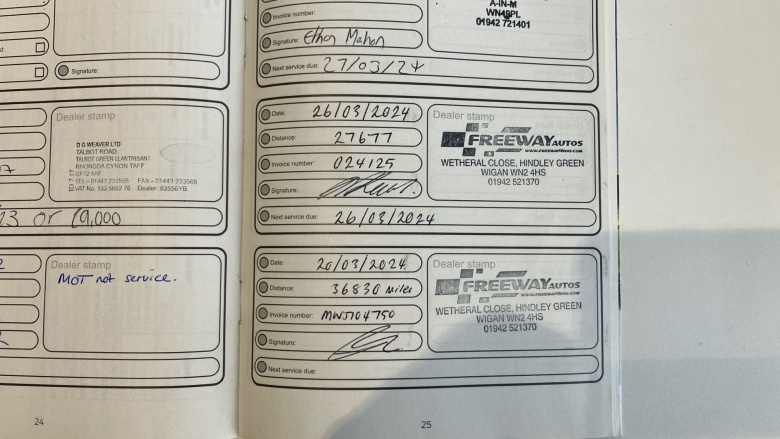 Signature:
Dealer stamp
D G WEAVER LTD
TALBOT ROAD
TALBOT GREEN LLANTRISANT
RHONDDA CYNON TAFF
CF72 8AF
TEL - 01443 233555 FAX - 01443 233565
VAT No. 133 5602 76 Dealer: 83556YB
or 19,000
Dealer stamp
MOT not service.
24
Invoice number:
Signature: Ethan Mahon
Next service due: 27/03/24
A-IN-M
WN49PL
01942 721401
Date: 26/03/2024
Distance: 27677
Invoice number: 024125
Signature:
Next service due: 26/03/2024
Dealer stamp
FREEWAY AUTOS
www.freeway4bmw.com
WETHERAL CLOSE, HINDLEY GREEN
WIGAN WN2 4HS
01942 521370
Date: 20/03/2024
Distance: 36830 miles
Invoice number: MWJ104750
Signature:
Next service due:
Dealer stamp
FREEWAY AUTOS
www.freeway4bmw.com
WETHERAL CLOSE, HINDLEY GREEN
WIGAN WN2 4HS
01942 521370
25